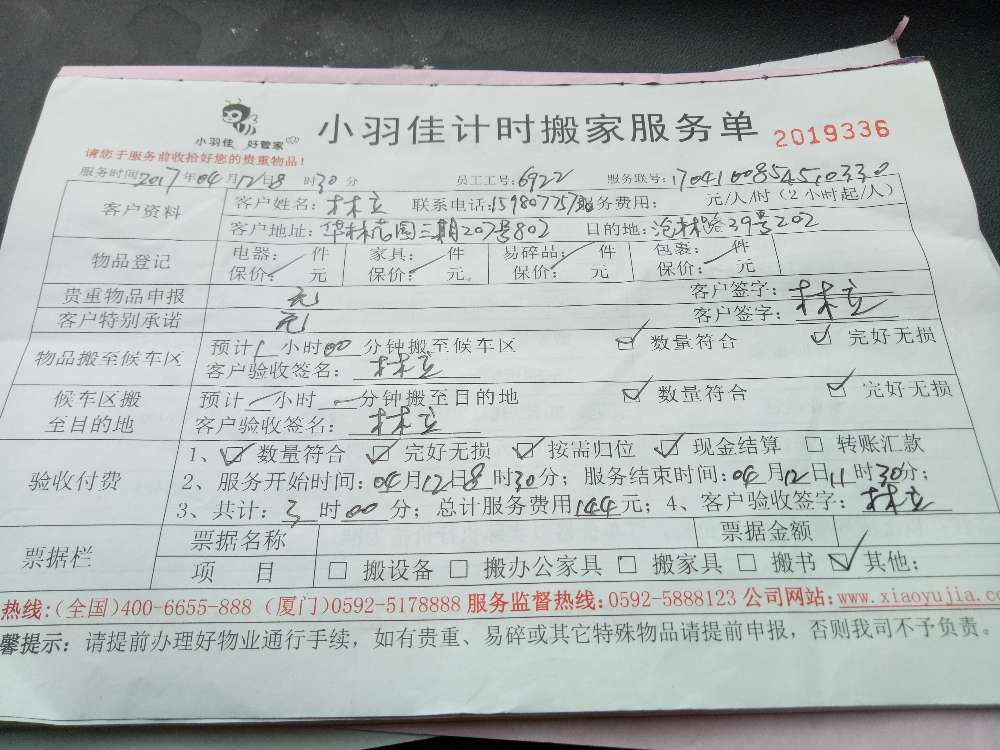 小羽佳 好管家
小羽佳计时搬家服务单 2019336
请您于服务前收拾好您的贵重物品！
服务时间2017年04月12日8时30分 员工工号：6922 服务联号：
客户资料 客户姓名：林立 联系电话： 服务费用： 元/人/时（2小时起/人）
客户地址：华林花园三期207号802 目的地：沧林路39号202
物品登记 电器： 件 家具： 件 易碎品： 件 包裹： 件
保价： 元 保价： 元 保价： 元 保价： 元
贵重物品申报 元 客户签字：林立
客户特别承诺 元 客户签字：林立
物品搬至候车区 预计1小时00分钟搬至候车区 ☑ 数量符合 ☑ 完好无损
客户验收签名：林立
候车区搬至目的地 预计 小时 分钟搬至目的地 ☑ 数量符合 ☑ 完好无损
客户验收签名：林立
验收付费 1、☑ 数量符合 ☑ 完好无损 ☑ 按需归位 ☑ 现金结算 □ 转账汇款
2、服务开始时间：04月12日8时30分；服务结束时间：04月12日11时30分；
3、共计：3时00分；总计服务费用144元；4、客户验收签字：林立
票据栏 票据名称 票据金额
项 目 □ 搬设备 □ 搬办公家具 □ 搬家具 □ 搬书 ☑ 其他：
热线：（全国）400-6655-888（厦门）0592-5178888 服务监督热线：0592-5888123 公司网站：www.xiaoyujia.co
馨提示：请提前办理好物业通行手续，如有贵重、易碎或其它特殊物品请提前申报，否则我司不予负责。